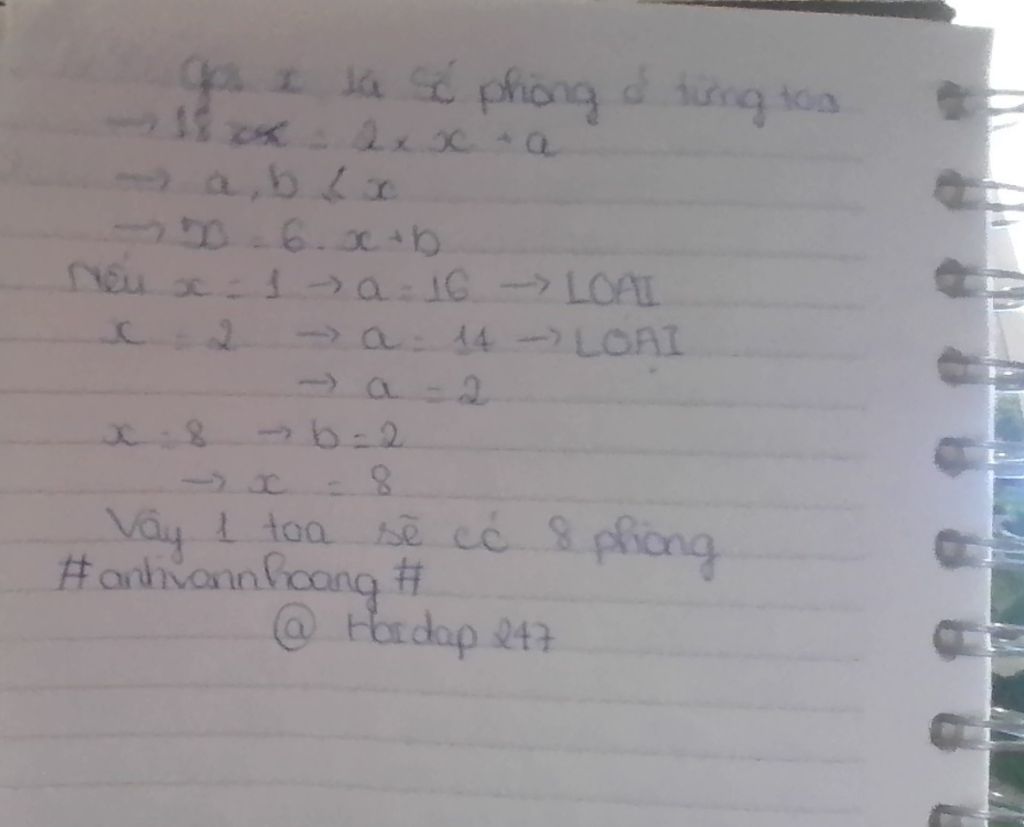 Gọi x là số phòng ở từng toa
→ 18 = 2 × x + a
→ a, b < x
→ 50 = 6 . x + b
Nếu x = 1 → a = 16 → LOẠI
x = 2 → a = 14 → LOẠI
→ a = 2
x = 8 → b = 2
→ x = 8
Vậy 1 toa sẽ có 8 phòng
#anhvannhoang#
@ Hoidap 247